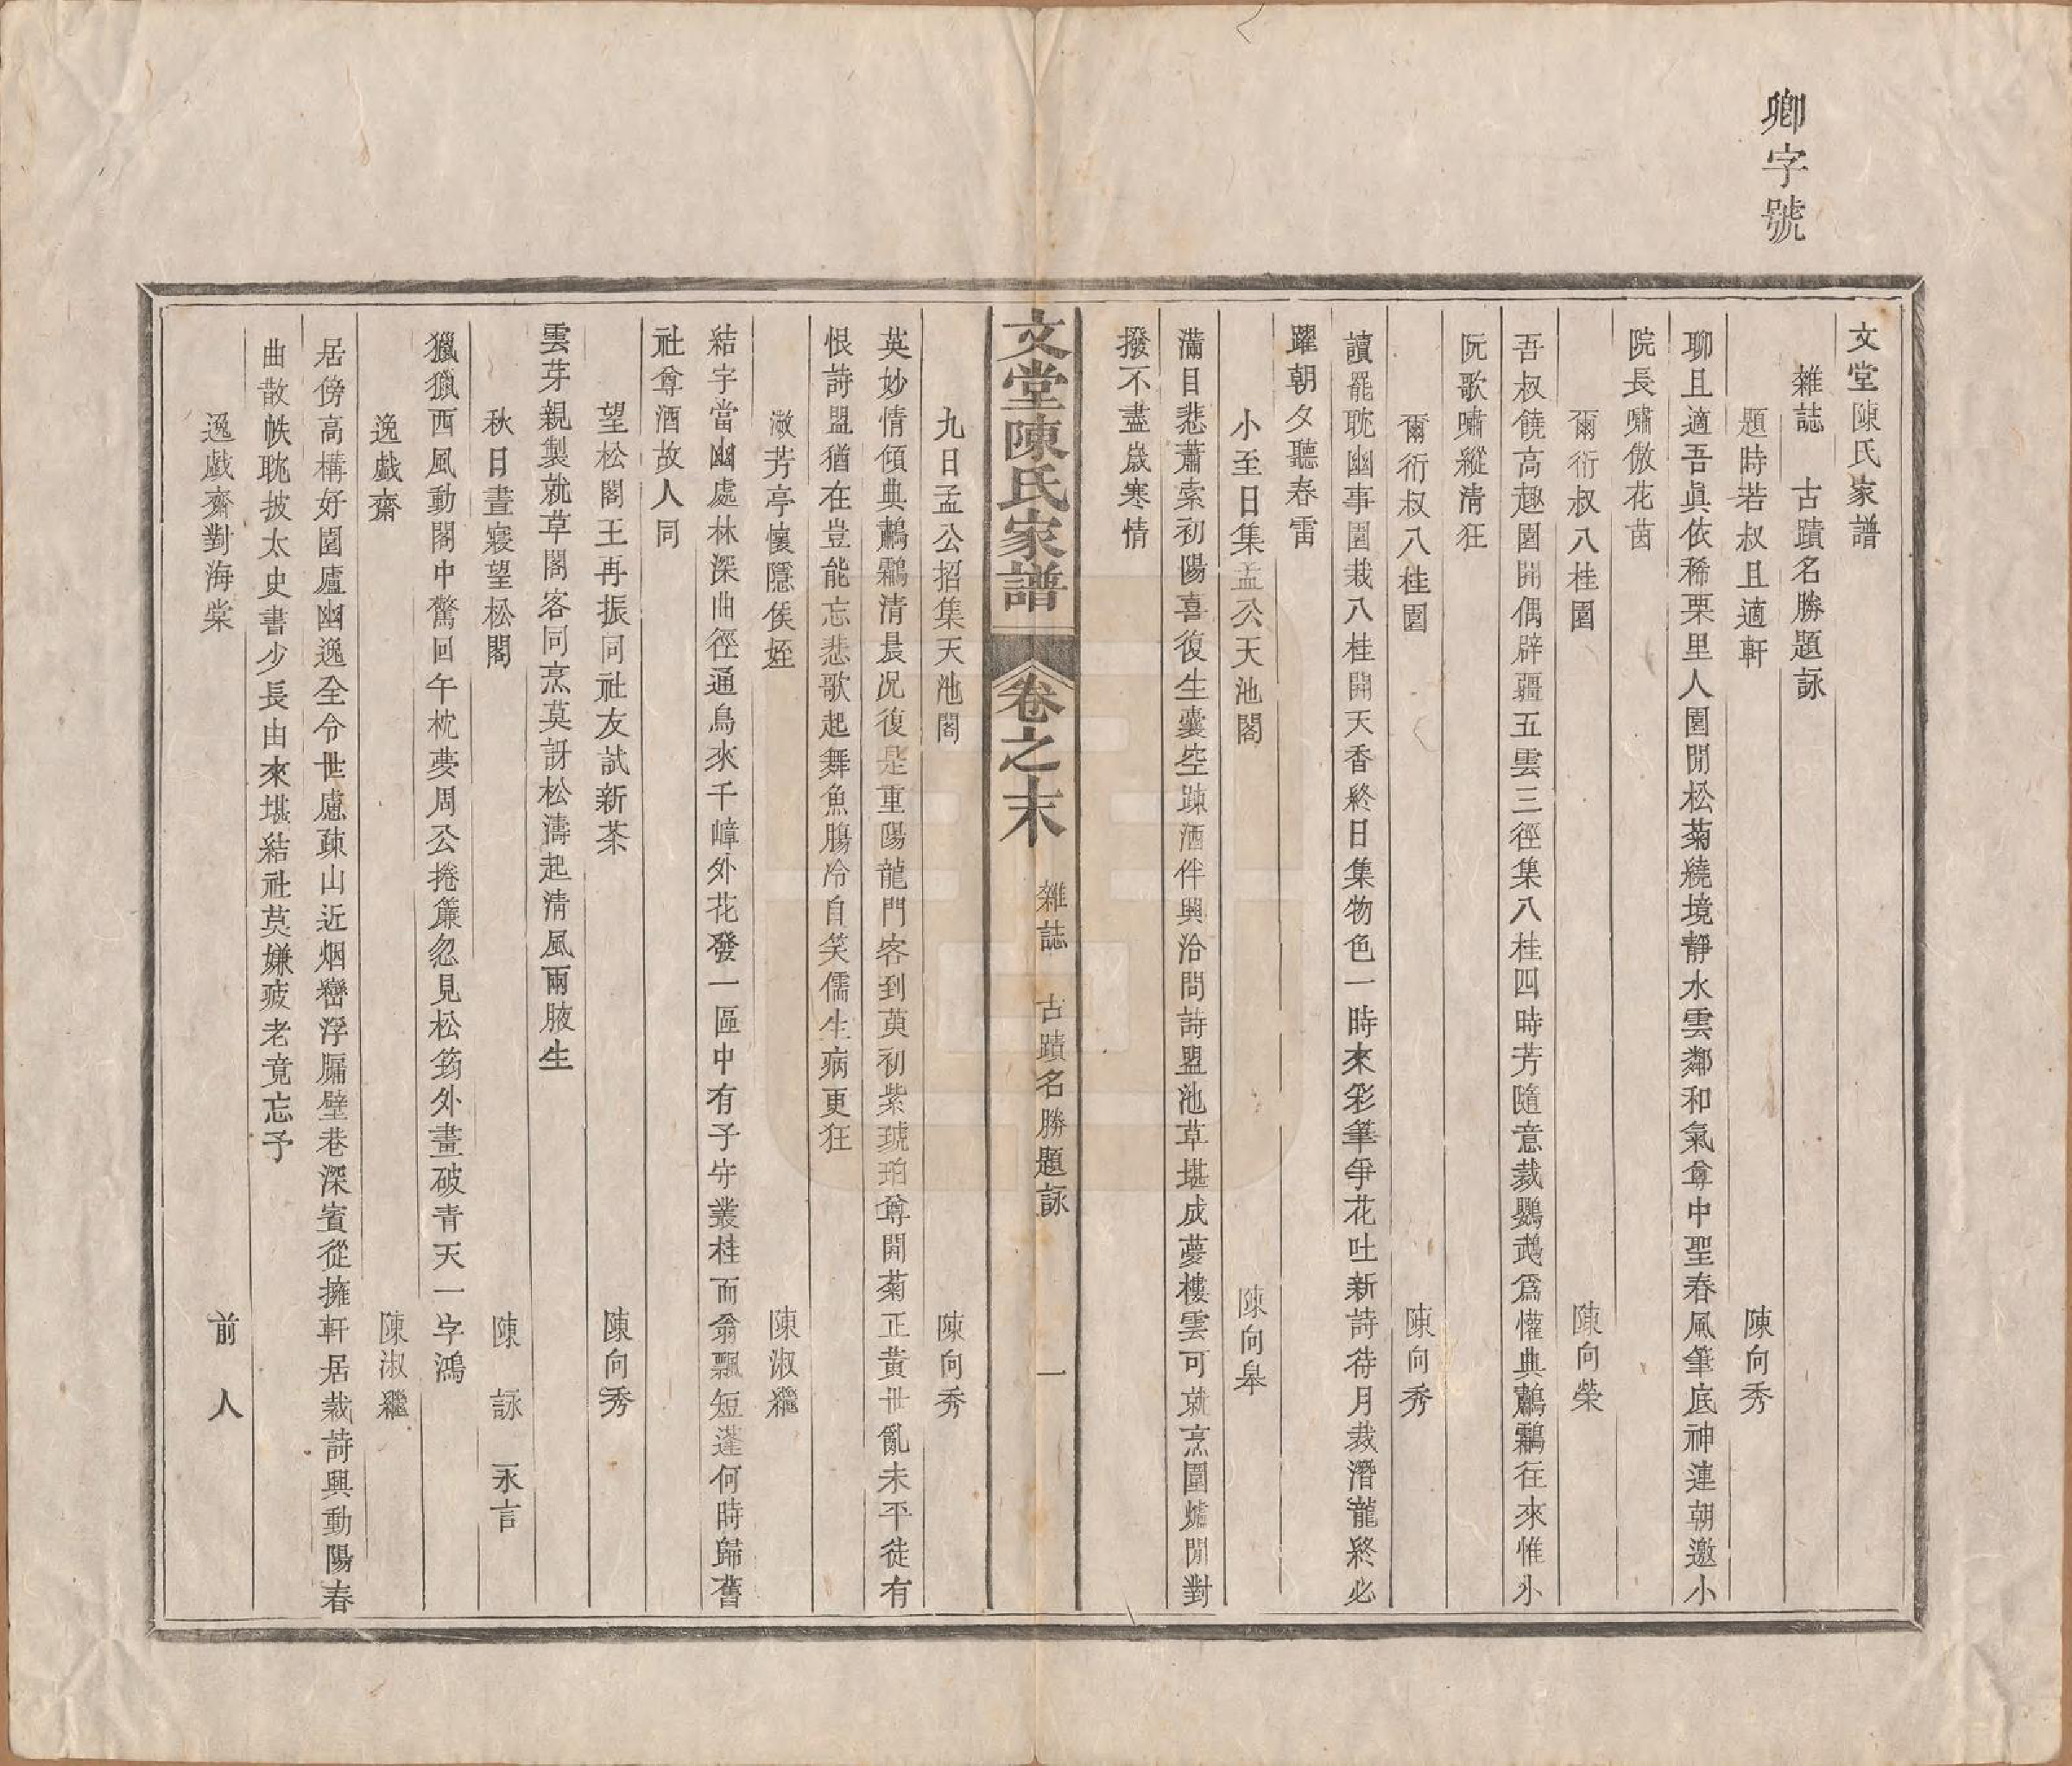 卿字號
文堂陳氏家譜
雜誌　古蹟名勝題詠
題時若叔且適軒　陳向秀
聊且適吾眞依稀栗里人園閒松菊繞境靜水雲鄰和氣尊中聖春風筆底神連朝邀小
院長嘯傲花茵
爾衍叔八桂園　陳向榮
吾叔饒高趣園開偶辟疆五雲三徑集八桂四時芳隨意裁鸚鵡爲懽典鷫鸘往來惟小
阮歌嘯縱清狂
爾衍叔八桂園　陳向秀
讀罷耽幽事園栽八桂開天香終日集物色一時來彩筆爭花吐新詩待月裁潛龍終必
躍朝夕聽春雷
小至日集孟公天池閣　陳向皋
滿目悲蕭索初陽喜復生囊空踈酒伴興洽問詩盟池草堪成夢樓雲可就烹圍爐閒對
撥不盡歲寒情
文堂陳氏家譜　卷之末　雜誌　古蹟名勝題詠　一
九日孟公招集天池閣　陳向秀
英妙情傾典鷫鸘清晨况復是重陽龍門客到萸初紫琥珀尊開菊正黃世亂未平徒有
恨詩盟猶在豈能忘悲歌起舞魚腸冷自笑儒生病更狂
漱芳亭懷隱侯姪　陳淑繼
結宇當幽處林深曲徑通鳥來千嶂外花發一區中有子守叢桂而翁飄短蓬何時歸舊
社尊酒故人同
望松閣王再振同社友試新茶　陳向秀
雲芽親製就草閣客同烹莫訝松濤起淸風兩腋生
秋日晝寢望松閣　陳詠　永言
獵獵西風動閣中驚回午枕夢周公捲簾忽見松筠外畫破青天一字鴻
逸戲齋　陳淑繼
居傍高構好園廬幽逸全令世慮疎山近烟巒浮牖壁巷深賓從擁軒居裁詩興動陽春
曲散帙耽披太史書少長由來堪結社莫嫌疲老竟忘予
逸戲齋對海棠　前人